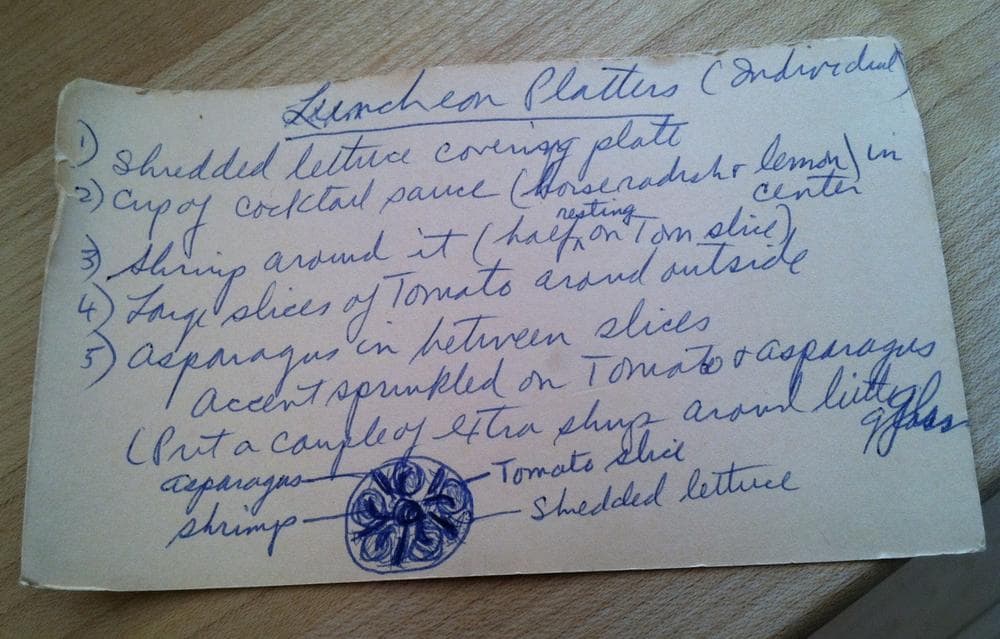 Luncheon Platters (Individual)
1) Shredded lettuce covering plate
2) Cup of cocktail sauce (horseradish & lemon) in center
3) Shrimp around it (half resting on Tom slice)
4) Large slices of Tomato around outside
5) Asparagus in between slices
Accent sprinkled on Tomato & asparagus
(Put a couple of extra shrimp around little glass
asparagus
Tomato slice
shrimp
Shredded lettuce